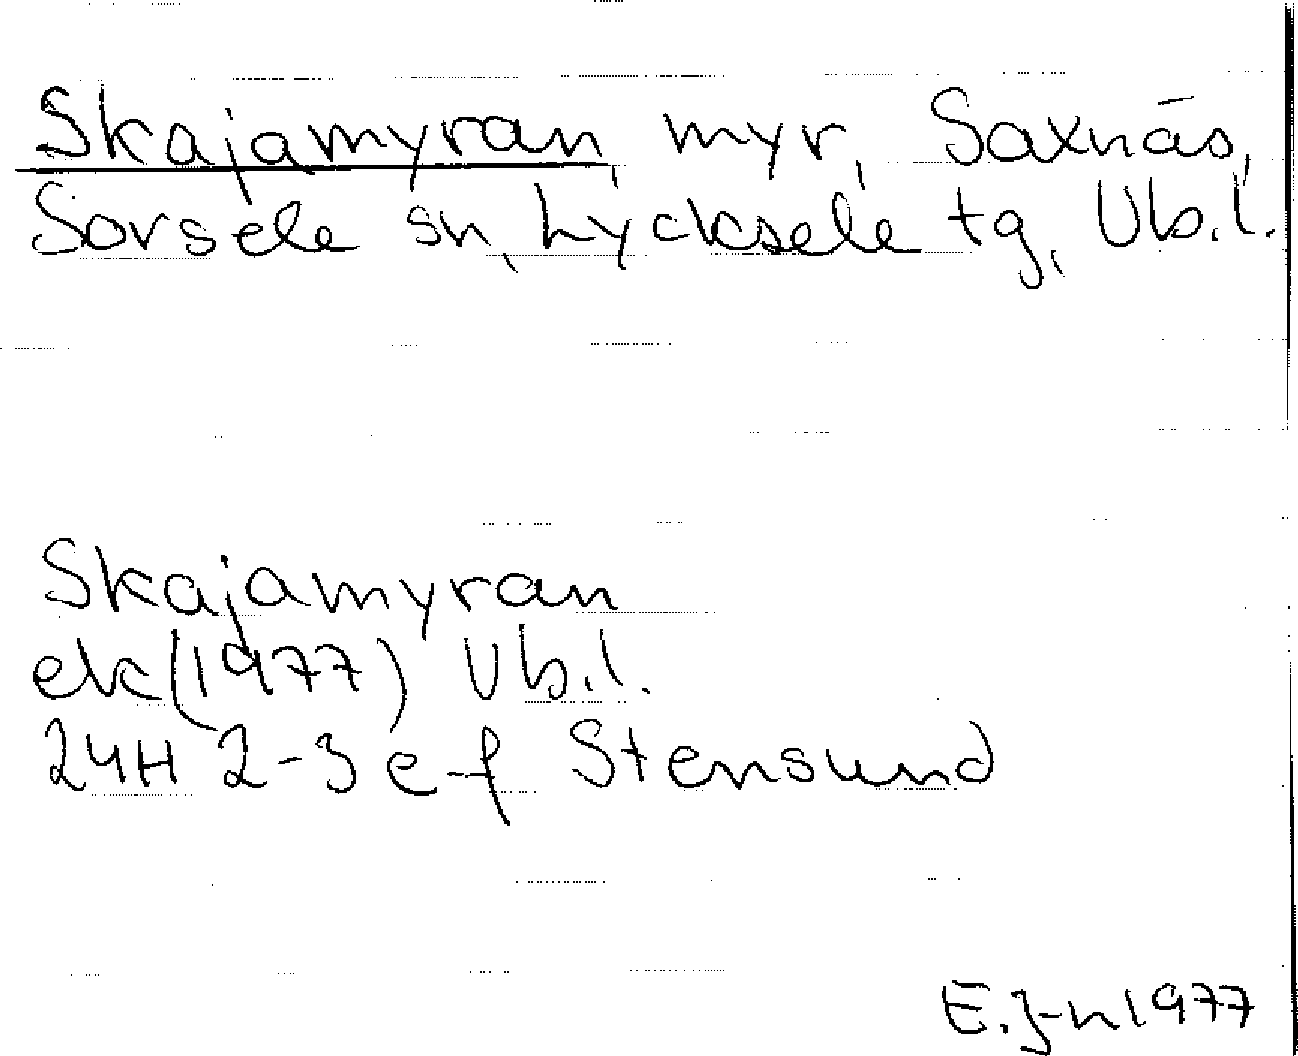 Skajamyran, myr, Saxnäs,
Sorsele sn, Lycksele tg, Vb.l.
Skajamyran
ek (1977) Vb.l.
24H 2-3 e-f Stensund
E. J-n 1977